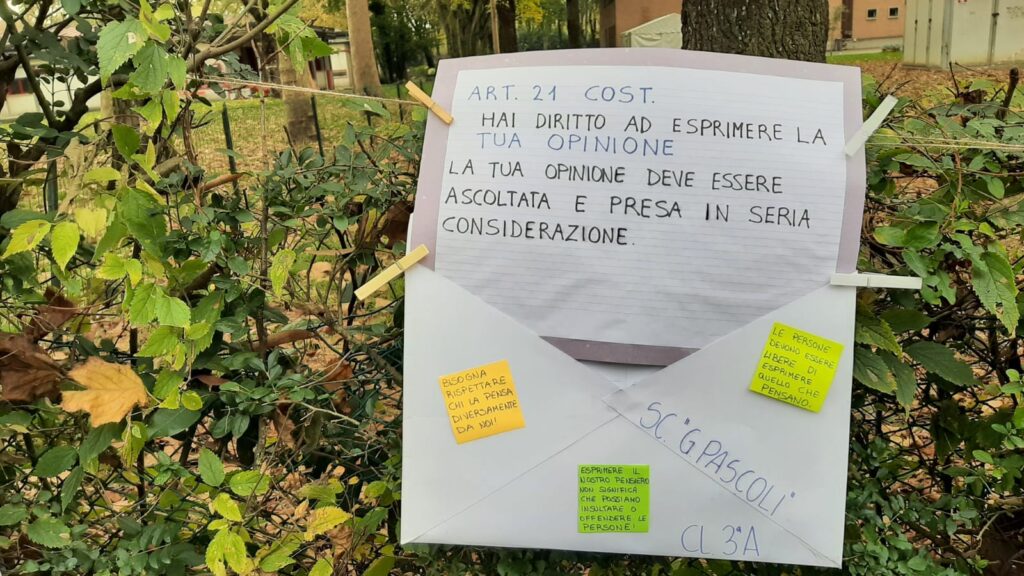 ART. 21 COST.
HAI DIRITTO AD ESPRIMERE LA
TUA OPINIONE
LA TUA OPINIONE DEVE ESSERE
ASCOLTATA E PRESA IN SERIA
CONSIDERAZIONE.
BISOGNA
RISPETTARE
CHI LA PENSA
DIVERSAMENTE
DA NOI!
LE PERSONE
DEVONO ESSERE
LIBERE DI
ESPRIMERE
QUELLO CHE
PENSANO.
ESPRIMERE IL
NOSTRO PENSIERO
NON SIGNIFICA
CHE POSSIAMO
INSULTARE O
OFFENDERE LE
PERSONE!
SC. "G PASCOLI"
Cl 3ªA